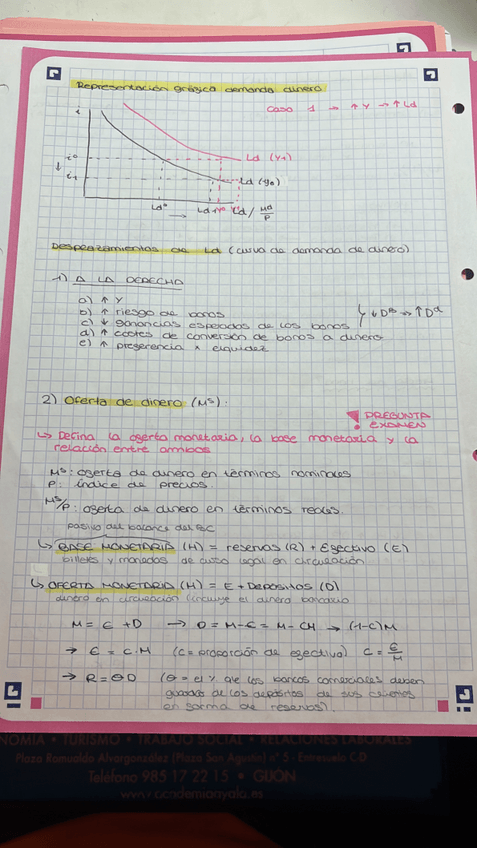 Representación gráfica demanda dinero
Caso 1 → ↑Y → ↑Ld
i
i0
↓
i1
Ld (Y1)
Ld (Y0)
Ld0 → Ld1 Ld / Md/P
Desplazamientos de Ld (curva de demanda de dinero)
1) A LA DERECHA
a) ↑ Y
b) ↑ riesgo de bonos
c) ↓ ganancias esperadas de los bonos
d) ↑ costes de conversión de bonos a dinero
e) ↑ preferencia x liquidez
↓DB → ↑Dd
2) Oferta de dinero (Ms):
! PREGUNTA EXAMEN
↳ Defina la oferta monetaria, la base monetaria y la
relación entre ambos
Ms: oferta de dinero en términos nominales
P: índice de precios
Ms/P: oferta de dinero en términos reales.
pasivo del balance del BC
↳ BASE MONETARIA (H) = reservas (R) + Efectivo (E)
billetes y monedas de curso legal en circulación
↳ OFERTA MONETARIA (M) = E + Depósitos (D)
dinero en circulación (incluye el dinero bancario
M = E + D → D = M - E = M - CM → (1-C)M
→ E = C·M (C = proporción de efectivo) C = E/M
→ R = ΘD (Θ = el % que los bancos comerciales deben
guardar de los depósitos de sus clientes
en forma de reservas).
NOMÍA • TURISMO • TRABAJO SOCIAL • RELACIONES LABORALES
Plaza Romualdo Alvargonzález (Plaza San Agustín) nº 5 - Entresuelo C-D
Teléfono 985 17 22 15 • GIJÓN
www.academiayala.es